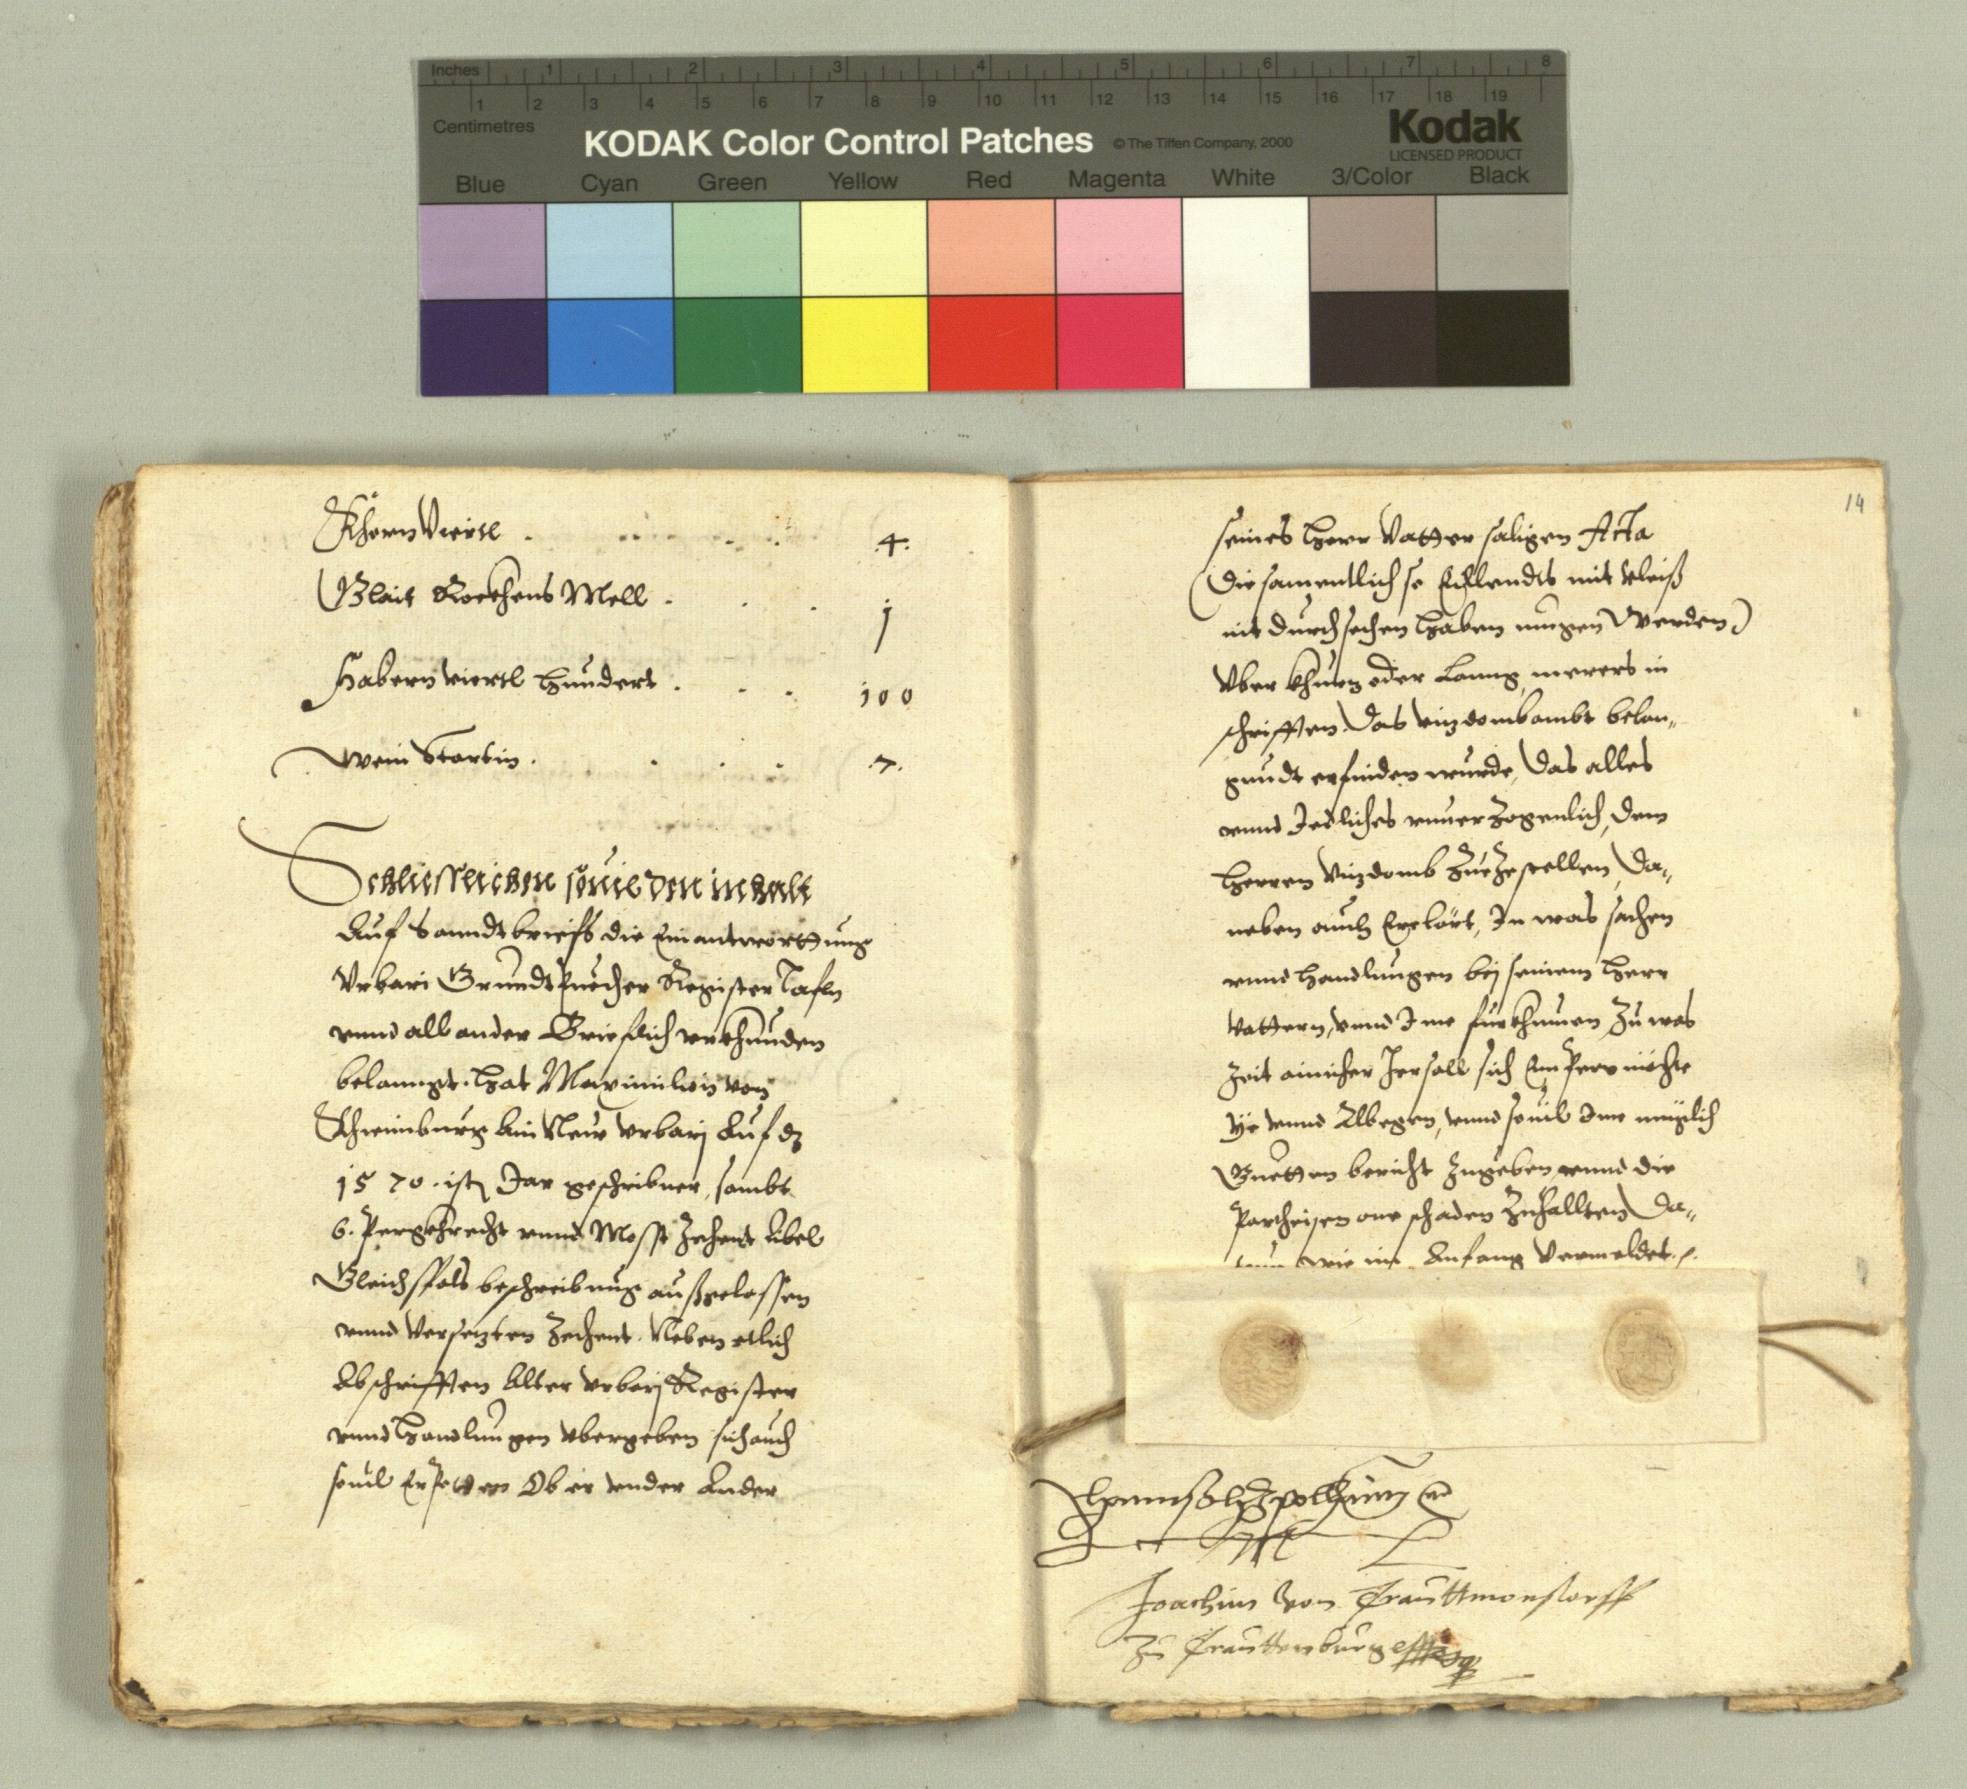 Inches 1 2 3 4 5 6 7 8
1 2 3 4 5 6 7 8 9 10 11 12 13 14 15 16 17 18 19
Centimetres
KODAK Color Control Patches © The Tiffen Company, 2000 Kodak
LICENSED PRODUCT
Blue Cyan Green Yellow Red Magenta White 3/Color Black
Khorn Viertl . . . . . 4.
Glait Rockhens Mell . . . j
Habern viertl hundert . . . 100
Wein Startin . . . . 7.
Schliesslichen souil den inhalt
Auf Sanndtbriefs die Einantworttung
Vrbari Grundtpuecher Register Tafln
vnnd all ander Brieflich vrkhunden
belanngt. hat Maximilian von
Kheinburg ain Neur vrbarj Auf dz
1570. ist Jar geschribner, sambt
6. Pergkhrecht vnnd Mosst Zehent libel
Gleichffals beschreibung außgelassen
vnnd Versezten Zehent. Neben etlich
Abschrifften Alter vrbarj Register
vnnd handlungen vbergeben sich auch
souil Erpotten Ob er vnder Ander
14
seines herr Vatter saligen Acta
(Die samentlich so Eillendts mit vleiß
nit durchsechen haben mugen werden)
Vber khurz oder Lanng, merers in
schrifften. Das vizdombambt belan„
gundt erfinden wurde, Das alles
vnnd Jedliches vnuerzogenlich, dem
herren Vizdomb Zuezestellen, Da„
neben auch Erclärt, In was sachen
vnnd handlungen bej seinem herr
Vattern, vnnd Ime fürkhumen, Zu was
Zeit ainicher Irrsall sich Empern möchte
Ye vnnd Albegen, vnnd souil Ime muglich
Guetten bericht Zugeben, vnnd die
Partheijen one schaden Zuhallten, Da„
wie im Anfang Vermeldet.
Joachim von Trauttmonstorff
zu Trauttenburg